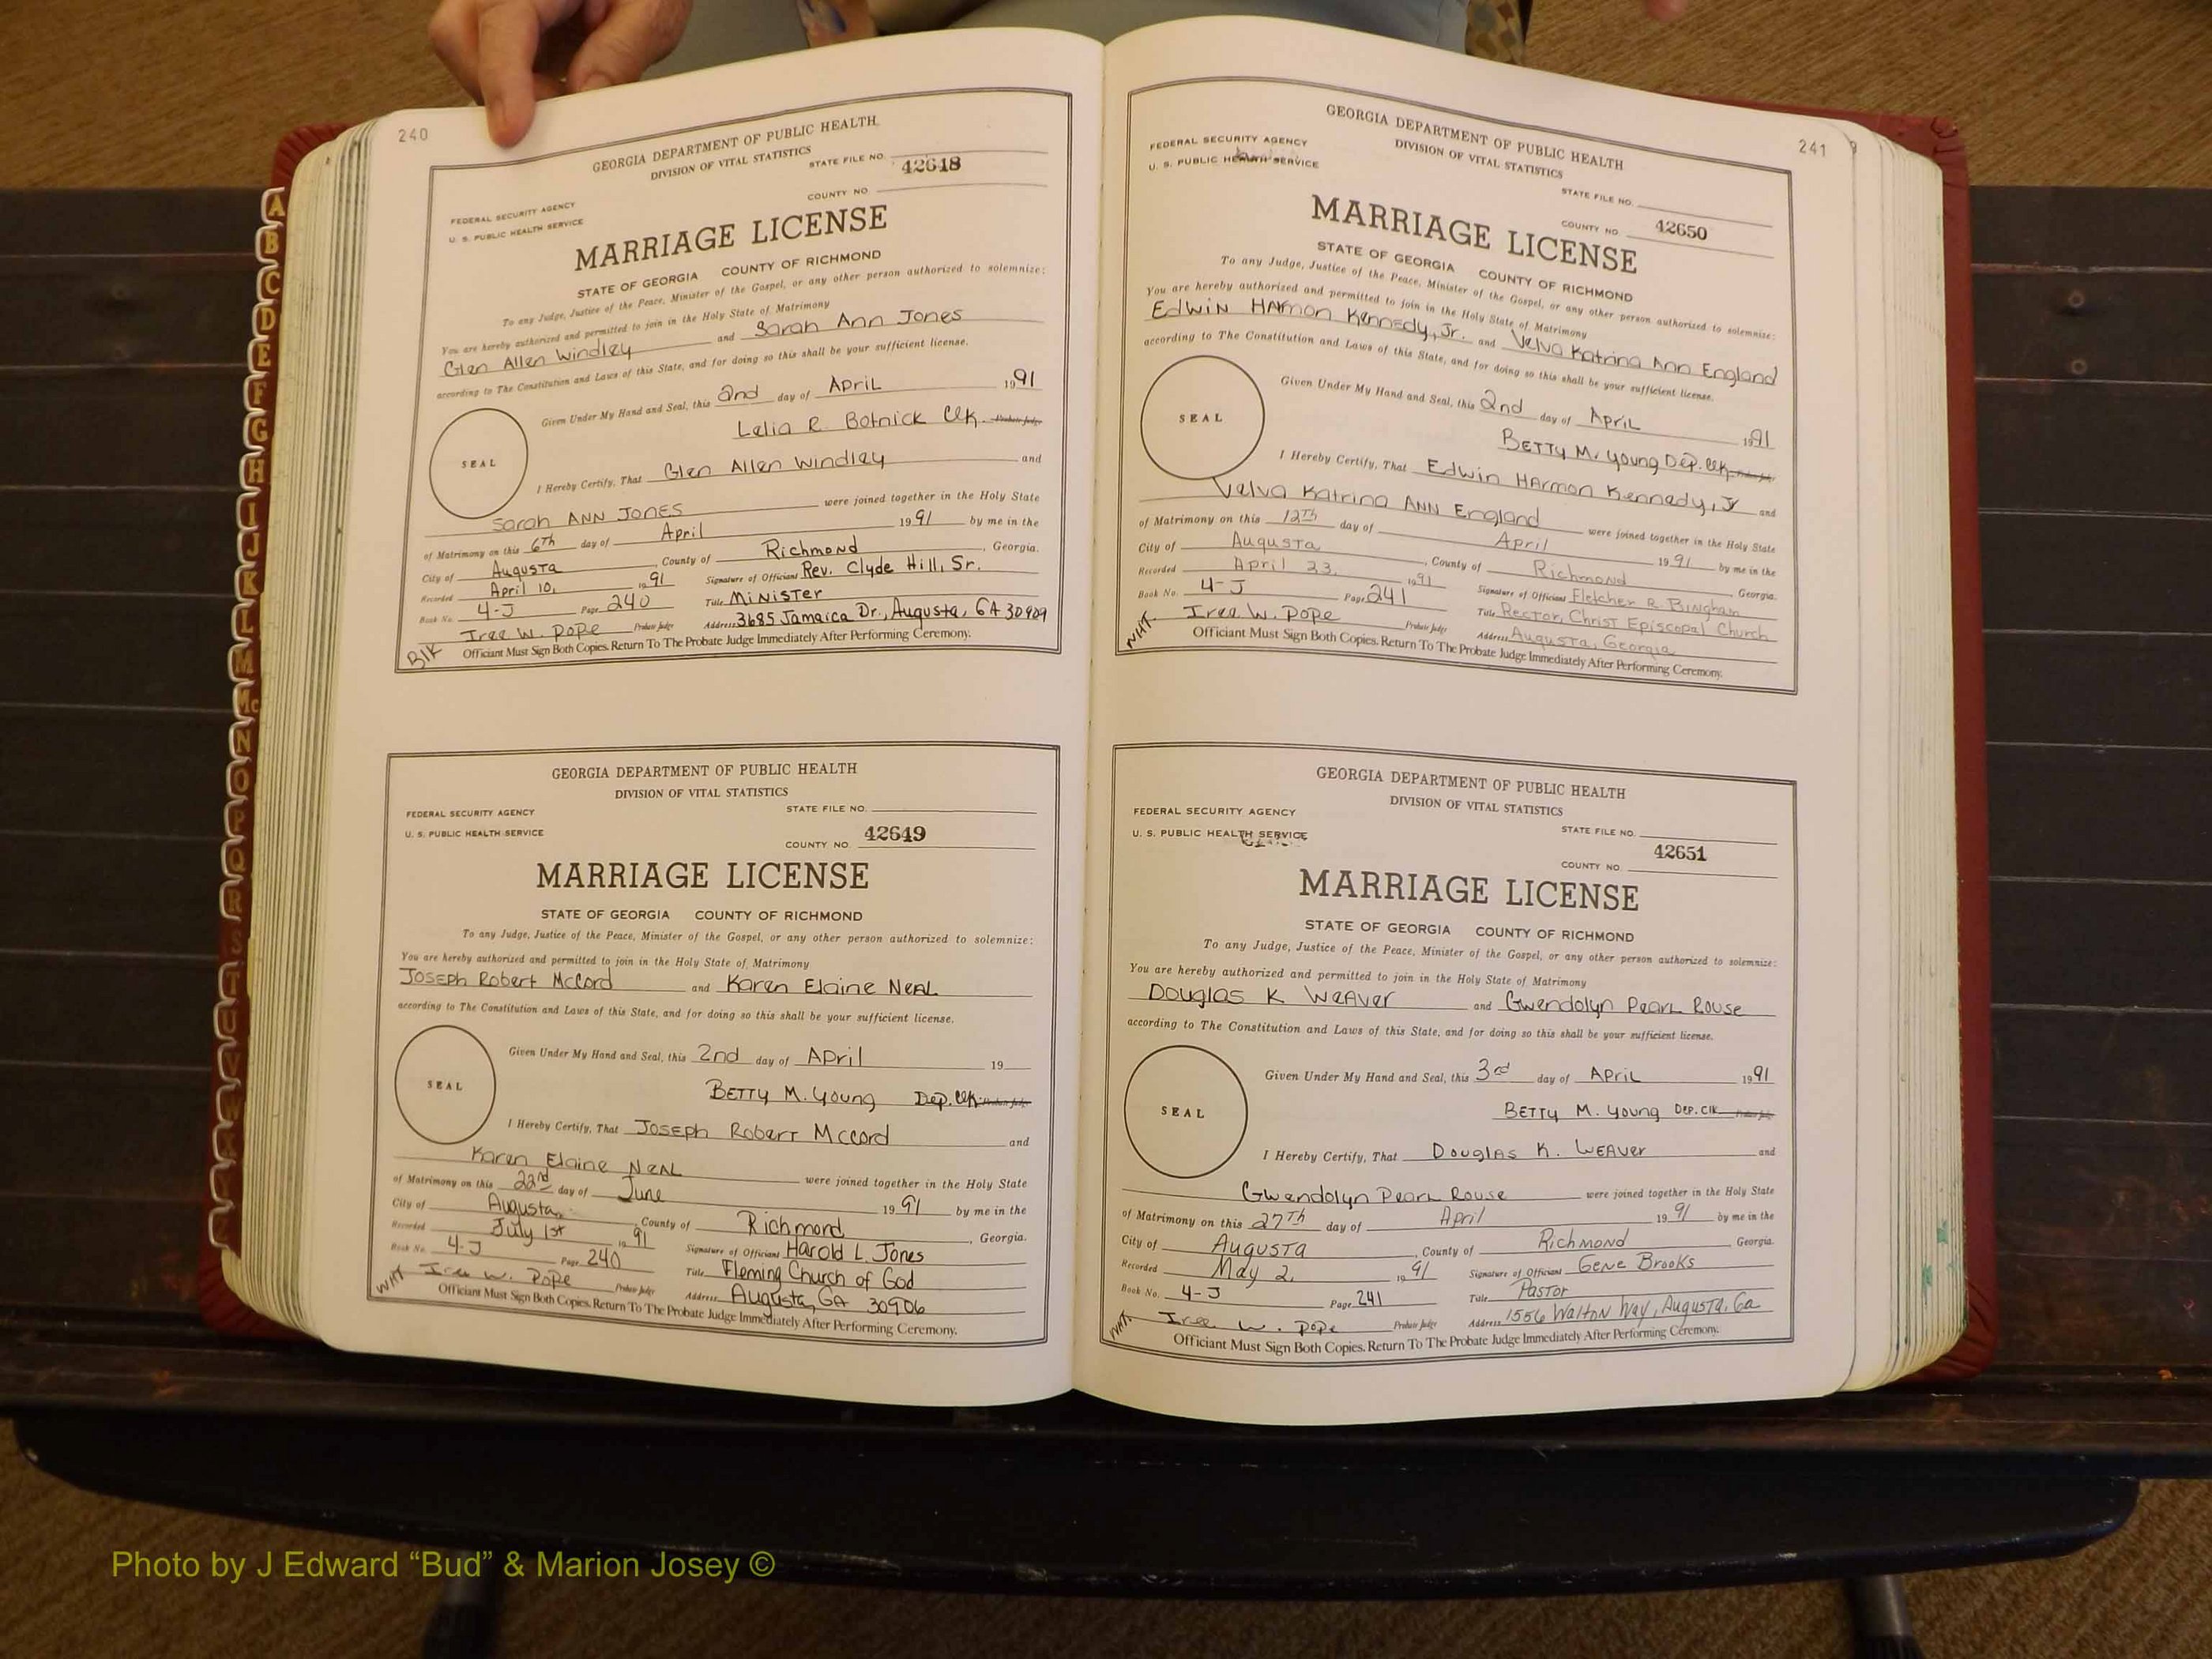 240
GEORGIA DEPARTMENT OF PUBLIC HEALTH
DIVISION OF VITAL STATISTICS
STATE FILE NO. 42648
COUNTY NO.
FEDERAL SECURITY AGENCY
U. S. PUBLIC HEALTH SERVICE
MARRIAGE LICENSE
STATE OF GEORGIA COUNTY OF RICHMOND
To any Judge, Justice of the Peace, Minister of the Gospel, or any other person authorized to solemnize:
You are hereby authorized and permitted to join in the Holy State of Matrimony
Glen Allen Windley and Sarah Ann Jones
according to The Constitution and Laws of this State, and for doing so this shall be your sufficient license.
Given Under My Hand and Seal, this 2nd day of April 1991
Lelia R. Botnick Clk. Probate Judge
SEAL
I Hereby Certify, That Glen Allen Windley and
Sarah ANN JONES were joined together in the Holy State
of Matrimony on this 6th day of April 1991 by me in the
City of Augusta, County of Richmond, Georgia.
Recorded April 10, 1991 Signature of Officiant Rev. Clyde Hill, Sr.
Book No. 4-J Page 240 Title Minister
Iree W. Pope Probate Judge Address 3685 Jamaica Dr., Augusta, GA 30909
Blk Officiant Must Sign Both Copies. Return To The Probate Judge Immediately After Performing Ceremony.
GEORGIA DEPARTMENT OF PUBLIC HEALTH
DIVISION OF VITAL STATISTICS
FEDERAL SECURITY AGENCY STATE FILE NO.
U. S. PUBLIC HEALTH SERVICE
COUNTY NO. 42649
MARRIAGE LICENSE
STATE OF GEORGIA COUNTY OF RICHMOND
To any Judge, Justice of the Peace, Minister of the Gospel, or any other person authorized to solemnize:
You are hereby authorized and permitted to join in the Holy State of Matrimony
Joseph Robert McCord and Karen Elaine Neal
according to The Constitution and Laws of this State, and for doing so this shall be your sufficient license.
Given Under My Hand and Seal, this 2nd day of April 19
Betty M. Young Dep. Clk. Probate Judge
SEAL
I Hereby Certify, That Joseph Robert McCord and
Karen Elaine Neal were joined together in the Holy State
of Matrimony on this 22nd day of June 1991 by me in the
City of Augusta, County of Richmond, Georgia.
Recorded July 1st 1991 Signature of Officiant Harold L. Jones
Book No. 4-J Page 240 Title Fleming Church of God
Iree W. Pope Probate Judge Address Augusta, GA 30906
WHT Officiant Must Sign Both Copies. Return To The Probate Judge Immediately After Performing Ceremony.
241
GEORGIA DEPARTMENT OF PUBLIC HEALTH
DIVISION OF VITAL STATISTICS
FEDERAL SECURITY AGENCY
U. S. PUBLIC HEALTH SERVICE
STATE FILE NO.
COUNTY NO. 42650
MARRIAGE LICENSE
STATE OF GEORGIA COUNTY OF RICHMOND
To any Judge, Justice of the Peace, Minister of the Gospel, or any other person authorized to solemnize:
You are hereby authorized and permitted to join in the Holy State of Matrimony
Edwin Harmon Kennedy, Jr. and Velva Katrina Ann England
according to The Constitution and Laws of this State, and for doing so this shall be your sufficient license.
Given Under My Hand and Seal, this 2nd day of April 1991
Betty M. Young Dep. Clk. Probate Judge
SEAL
I Hereby Certify, That Edwin Harmon Kennedy, Jr and
Velva Katrina ANN England were joined together in the Holy State
of Matrimony on this 12th day of April 1991 by me in the
City of Augusta, County of Richmond Georgia.
Recorded April 23, 1991 Signature of Officiant Fletcher R. Bingham
Book No. 4-J Page 241 Title Rector, Christ Episcopal Church
Iree W. Pope Probate Judge Address Augusta, Georgia
WHT Officiant Must Sign Both Copies. Return To The Probate Judge Immediately After Performing Ceremony.
GEORGIA DEPARTMENT OF PUBLIC HEALTH
DIVISION OF VITAL STATISTICS
FEDERAL SECURITY AGENCY
U. S. PUBLIC HEALTH SERVICE STATE FILE NO.
COUNTY NO. 42651
MARRIAGE LICENSE
STATE OF GEORGIA COUNTY OF RICHMOND
To any Judge, Justice of the Peace, Minister of the Gospel, or any other person authorized to solemnize:
You are hereby authorized and permitted to join in the Holy State of Matrimony
Douglas K Weaver and Gwendolyn Pearl Rouse
according to The Constitution and Laws of this State, and for doing so this shall be your sufficient license.
Given Under My Hand and Seal, this 3rd day of April 1991
Betty M. Young Dep. Clk Probate Judge
SEAL
I Hereby Certify, That Douglas K. Weaver and
Gwendolyn Pearl Rouse were joined together in the Holy State
of Matrimony on this 27th day of April 1991 by me in the
City of Augusta, County of Richmond Georgia.
Recorded May 2, 1991 Signature of Officiant Gene Brooks
Book No. 4-J Page 241 Title Pastor
Iree W. Pope Probate Judge Address 1556 Walton Way, Augusta, Ga
WHT. Officiant Must Sign Both Copies. Return To The Probate Judge Immediately After Performing Ceremony.
A
B
C
D
E
F
G
H
I
J
K
L
M
Mc
N
O
P
Q
R
S
T
U
V
W
Photo by J Edward “Bud” & Marion Josey ©